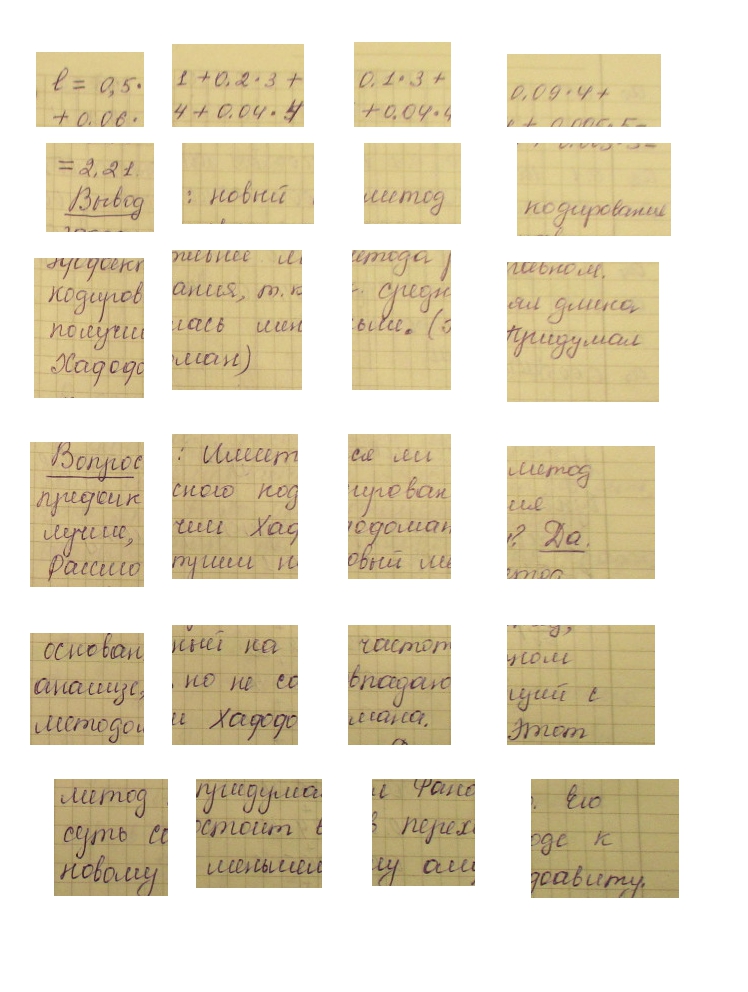 l = 0,5·1 + 0.2·3 + 0.1·3 + 0.09·4 +
+ 0.06·4 + 0.04·4 + 0.04·4 + 0.005·5 =
= 2,21.
Вывод: новый метод кодирования
метода
кодирования, т.к. средняя длина
получилась меньше. Придумал
Хадодоман)
Вопрос: Имеется ли метод
префиксного кодирования
лучше, чем Хадодоман? Да.
Рассмотрим новый метод,
основанный на частотном
анализе, но не совпадающий с
методом Хадодомана. Этот
метод придумал Фано. Его
суть состоит в переходе к
новому меньшему алфавиту.